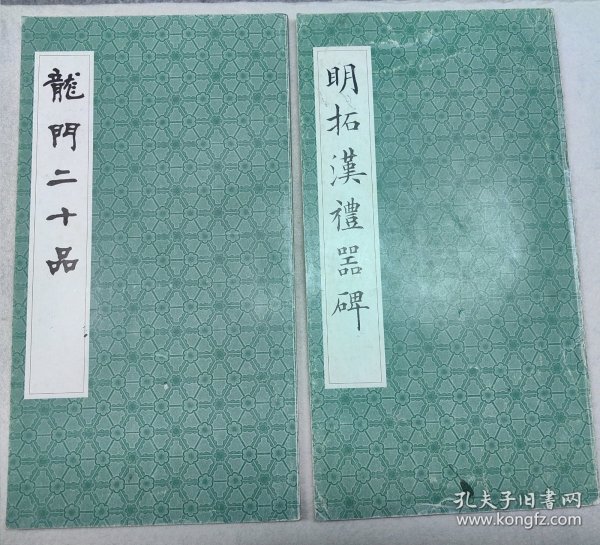 龍門二十品
明拓漢禮器碑
孔夫子旧書网
www.kongfz.com